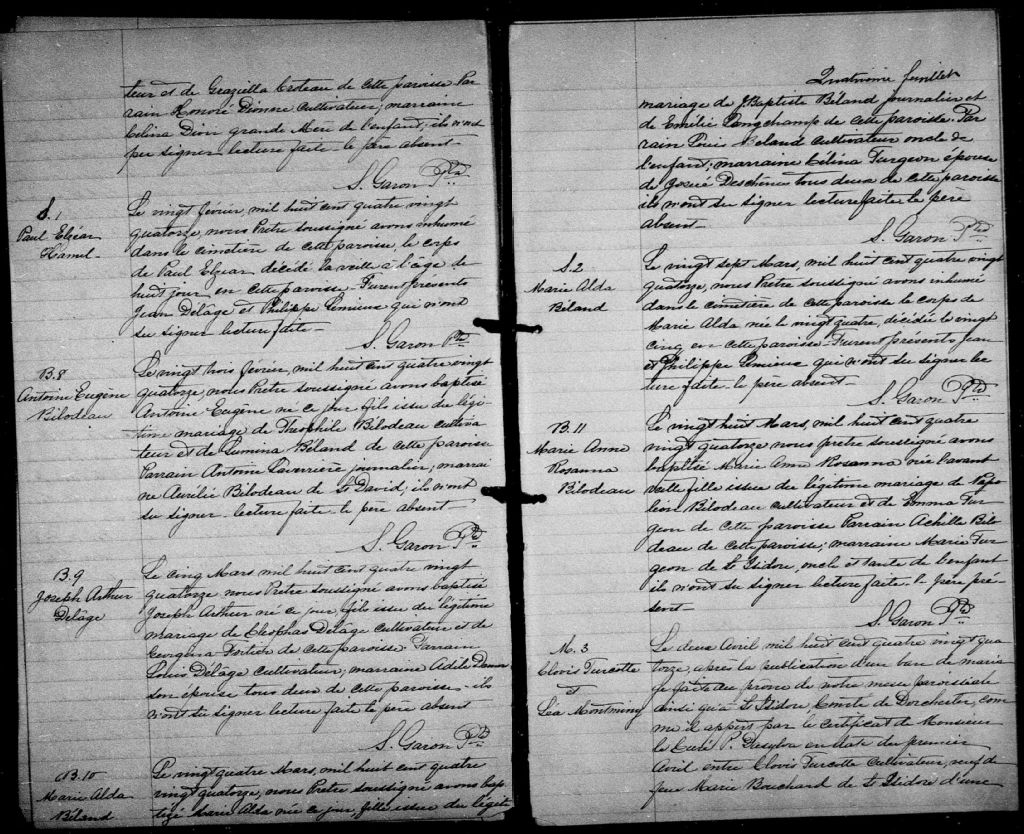 teur et de Graziella Croteau de cette paroisse Par
rain Honoré Dionne Cultivateur, marraine
Célina Dion grande Mère de l'enfant, ils n'ont
pu signer lecture faite le père absent
S. Garon Ptre
S. 1
Paul Elzéar
Hamel
Le vingt février, mil huit cent quatre vingt
quatorze, nous Prêtre soussigné avons inhumé
dans le cimetière de cette paroisse, le corps
de Paul Elzéar, décédé la veille à l'âge de
huit jour en cette paroisse. Furent présents
Jean Délâge et Philippe Lemieux qui n'ont
su signer lecture faite
S. Garon Ptre
B. 8
Antoine Eugène
Bilodeau
Le vingt trois février, mil huit cent quatre vingt
quatorze, nous Prêtre soussigné avons baptisé
Antoine Eugène né ce jour fils issu du légi
time mariage de Théophile Bilodeau cultiva
teur et de Lumina Béland de cette paroisse
Parrain Antoine Laverrière journalier, marrai
ne Aurélie Bilodeau de St David, ils n'ont
su signer lecture faite le père absent
S. Garon Ptre
B. 9
Joseph Arthur
Délâge
Le cinq Mars, mil huit cent quatre vingt
quatorze nous Prêtre soussigné avons baptisé
Joseph Arthur né ce jour, fils issu du légitime
mariage de Cléophas Delâge cultivateur et de
Georgina Fortier de cette paroisse. Parrain
Louis Délâge cultivateur, marraine Adèle
son épouse tous deux de cette paroisse ils
n'ont su signer lecture faite le père absent
S. Garon Ptre
B. 10
Marie Alda
Béland
Le vingt quatre Mars, mil huit cent quatre
vingt quatorze, nous Prêtre soussigné avons bap
tisé Marie Alda née ce jour, fille issue du légit
Quatrième feuillet
mariage de J. Baptiste Béland journalier et
de Emélie Longchamp de cette paroisse. Par
rain Louis Béland Cultivateur oncle de
l'enfant; marraine Célina Turgeon épouse
de Josué Deschênes tous deux de cette paroisse
ils n'ont su signer lecture faite le père
absent
S. Garon Ptre
S. 2
Marie Alda
Béland
Le vingt sept Mars, mil huit cent quatre vingt
quatorze, nous Prêtre soussigné avons inhumé
dans le cimetière de cette paroisse le corps de
Marie Alda née le vingt quatre, décédée le vingt
cinq en cette paroisse. Furent présents Jean
et Philippe Lemieux qui n'ont su signer lec
ture faite le père absent
S. Garon Ptre
B. 11
Marie Anne
Rosanna
Bilodeau
Le vingt huit Mars, mil huit cent quatre
vingt quatorze nous prêtre soussigné avons
baptisé Marie Anne Rosanna née l'avant
veille fille issue du légitime mariage de Napo
léon Bilodeau cultivateur et de Emma Tur
geon de cette paroisse Parrain Achille Bilo
deau de cette paroisse; marraine Marie Tur
geon de St Isidore, oncle et tante de l'enfant
ils n'ont su signer lecture faite le père pré
sent
S. Garon Ptre
M. 3
Clovis Turcotte
et
Léa Montminy
Le deux Avril mil huit cent quatre vingt qua
torze, après la publication d'un banc de maria
ge faite au prône de notre messe paroissiale
ainsi qu'à St Isidore, Comté de Dorchester, com
me il appert par le certificat de Monsieur
le Curé P. en date du premier
Avril entre Clovis Turcotte Cultivateur, veuf de
feue Marie Bouchard de St Isidore d'une